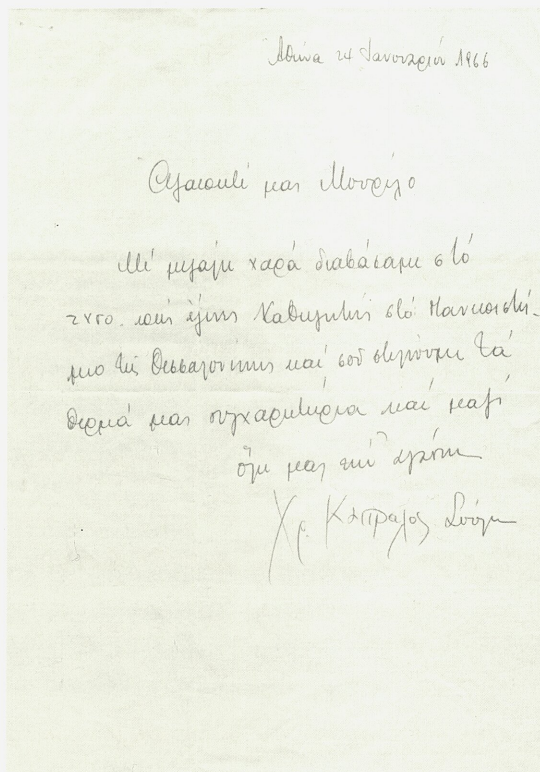 Ἀθήνα 24 Ἰανουαρίου 1966
Ἀγαπητέ μας Μουρέλο
Μέ μεγάλη χαρά διαβάσαμε στό
τυπο πώς ἔγινες Καθηγητής στό Πανεπιστή-
μιο τῆς Θεσσαλονίκης καί σοῦ στέλνουμε τά
θερμά μας συγχαρητήρια καί μαζί
ὅλη μας τήν ἀγάπη
Χρ. Καπράλος Σούλη